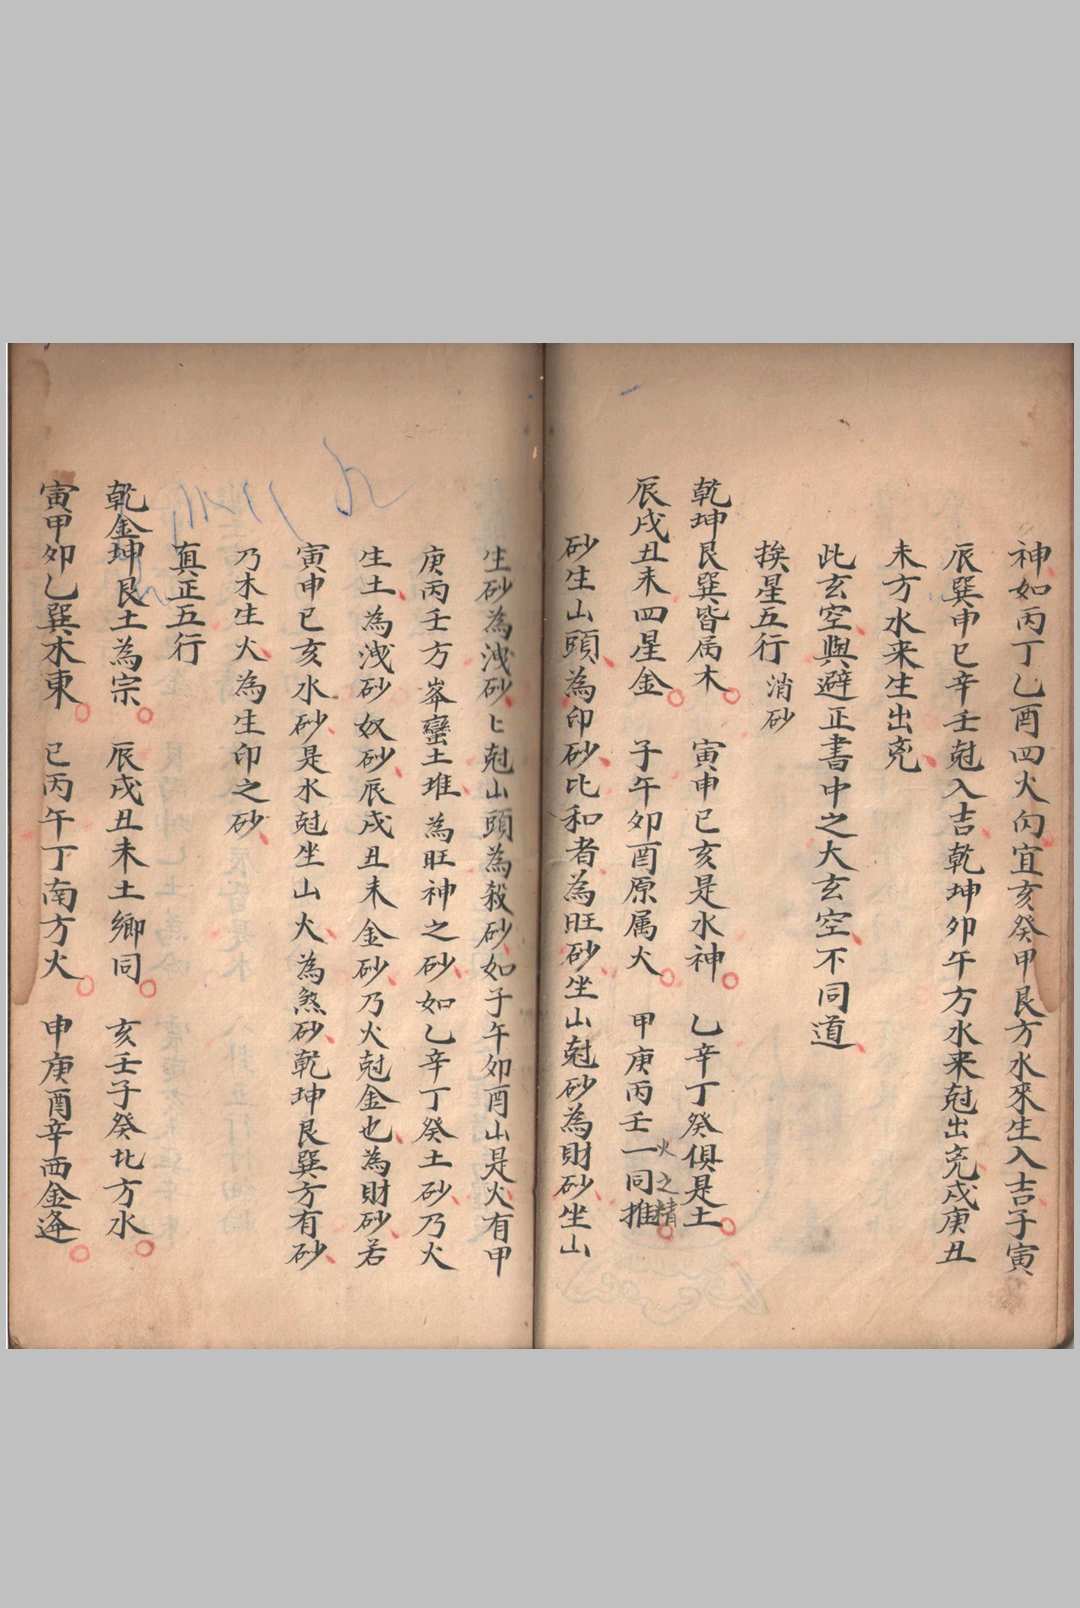 神如丙丁乙酉四火向宜亥癸甲艮方水來生入吉子寅
辰巽申巳辛壬尅入吉乾坤卯午方水来尅出兇戍庚丑
未方水来生出兇
此玄空與避正書中之大玄空不同道
挨星五行 消砂
乾坤艮巽皆属木 寅申巳亥是水神 乙辛丁癸俱是土
辰戍丑未四星金 子午卯酉原属火 甲庚丙壬一同推 火之精
砂生山頭為印砂比和者為旺砂坐山尅砂為財砂坐山
生砂為洩砂匕尅山頭為殺砂如子午卯酉山是火有甲
庚丙壬方峯巒土堆為旺神之砂如乙辛丁癸土砂乃火
生土為洩砂奴砂辰戍丑未金砂乃火尅金也為財砂若
寅申巳亥水砂是水尅坐山火為煞砂乾坤艮巽方有砂
乃木生火為生印之砂
真正五行
乾金坤艮土為宗 辰戍丑未土鄉同 亥壬子癸北方水
寅甲卯乙巽木東 巳丙午丁南方火 申庚酉辛西金逢